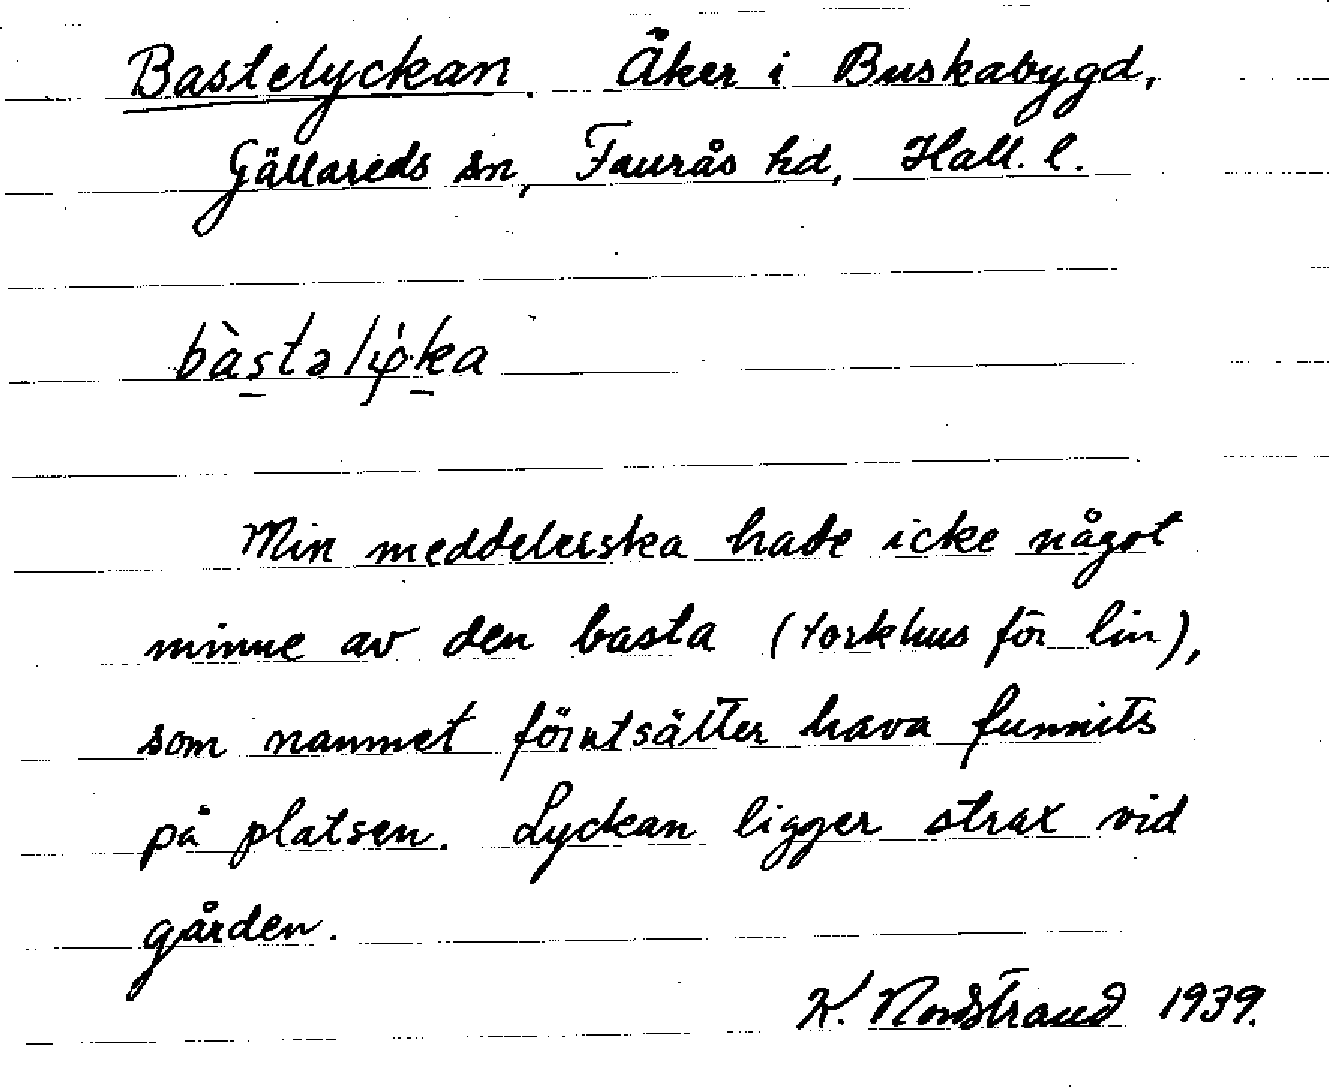 Bastelyckan. Åker i Buskabygd,
Gällareds sn, Faurås hd, Hall. l.
bàstəlyka
Min meddelerska hade icke något
minne av den basta (torkhus för lin),
som namnet förutsätter hava funnits
på platsen. Lyckan ligger strax vid
gården.
K. Nordstrand 1939.